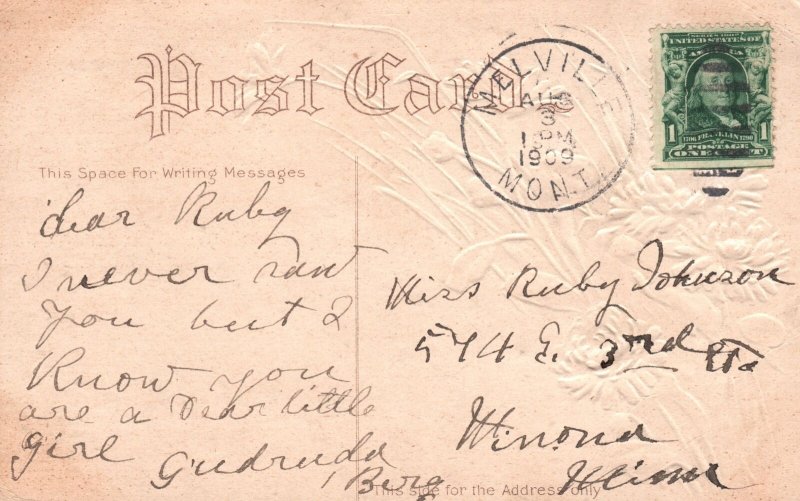 Post Card
MELVILLE
AUG
3
1 PM
1909
MONT.
SERIES 1902
UNITED STATES OF
AMERICA
1706 FRANKLIN 1790
1 POSTAGE 1
ONE CENT
This Space For Writing Messages
Dear Ruby
I never saw
you but I
Know you
are a Dear little
girl
Gudruda
Berg
Miss Ruby Johnson
574 E. 3rd St.
Winona
Minn
This side for the Address only